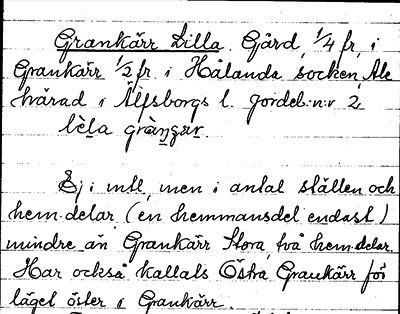 Grankärr Lilla. Gård, 1/4 fr, i
Grankärr 1/2 fr. i Hålanda socken, Ale
härad i Älfsborgs l. jordeb.n:r 2
lèla gràŋɡær.
Ej i mtl, men i antal ställen och
hem.delar (en hemmansdel endast)
mindre än Grankärr Stora, två hem.delar.
Har också kallats Östra Grankärr för
läget öster i Grankärr.